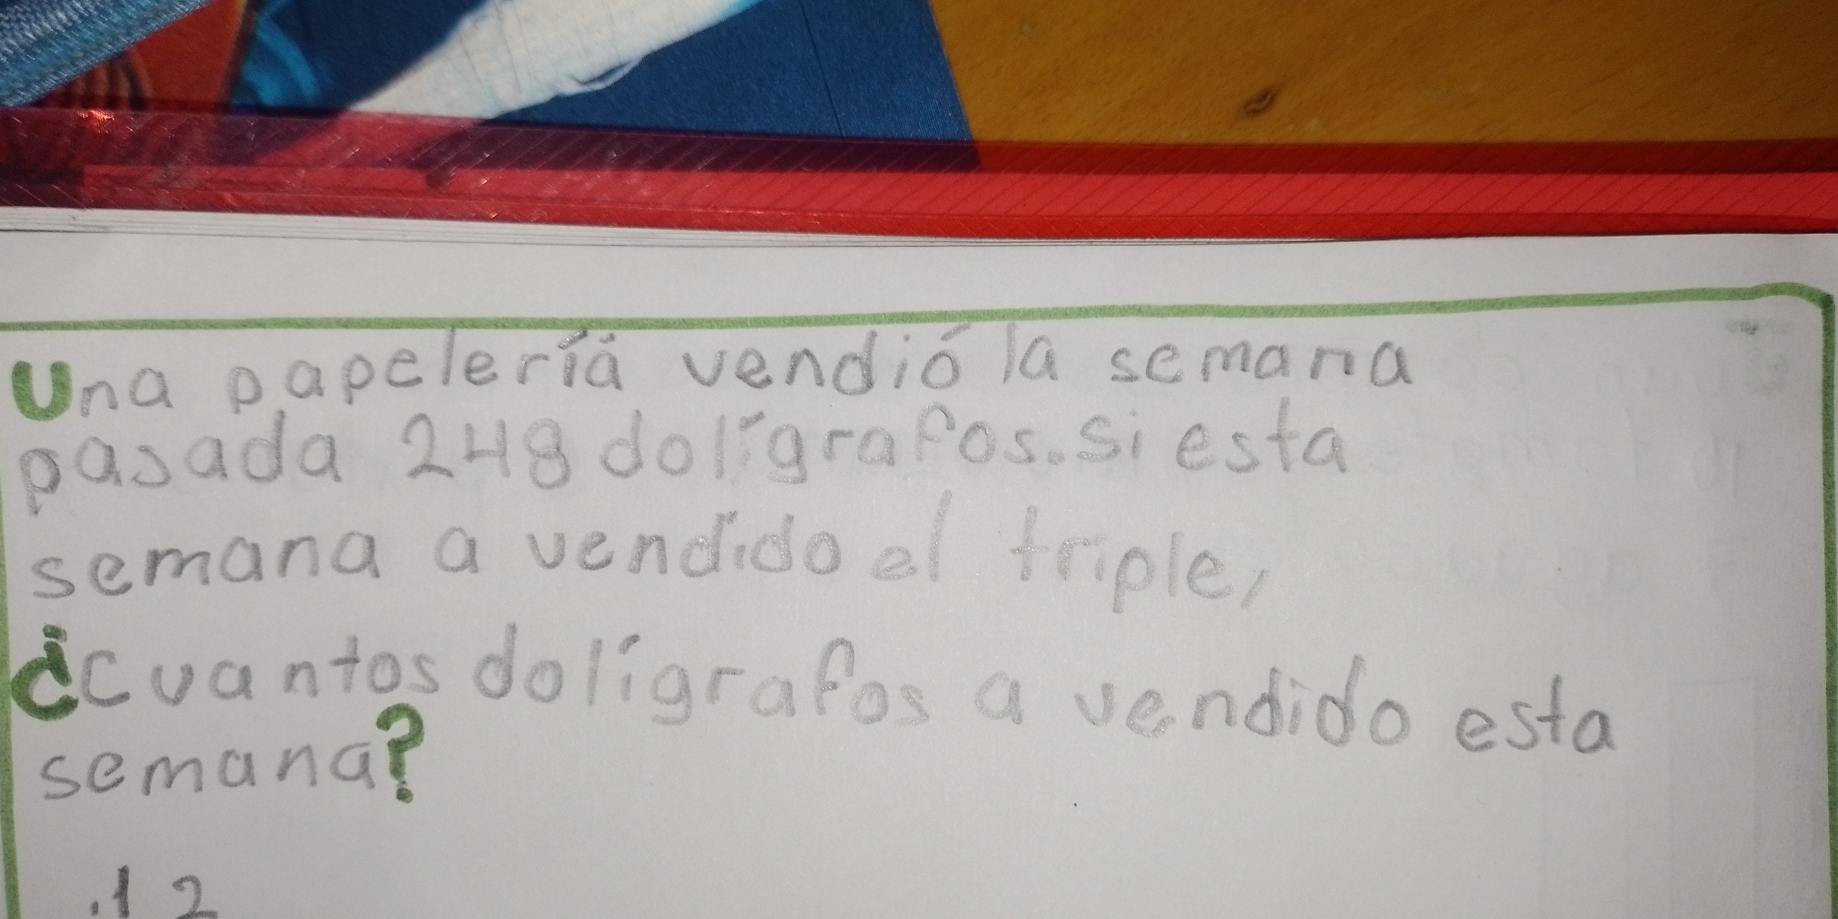 Una papelería vendió la semana
pasada 248 dolígrafos. si esta
semana a vendido el triple,
¿cuantos dolígrafos a vendido esta
semana?
12